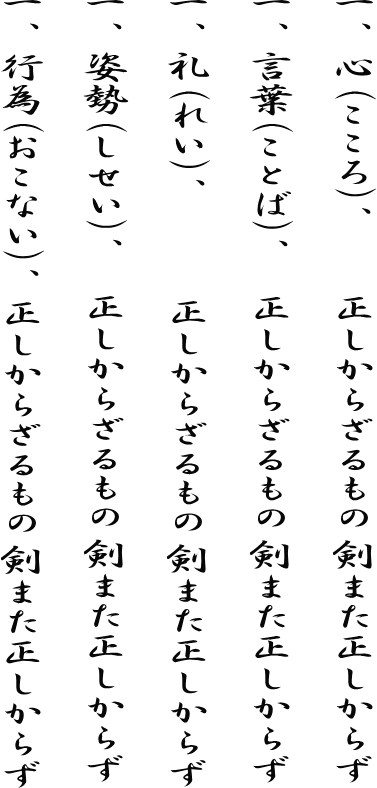 一、心(こころ)、正しからざるもの剣また正しからず
一、言葉(ことば)、正しからざるもの剣また正しからず
一、礼(れい)、正しからざるもの剣また正しからず
一、姿勢(しせい)、正しからざるもの剣また正しからず
一、行為(おこない)、正しからざるもの剣また正しからず